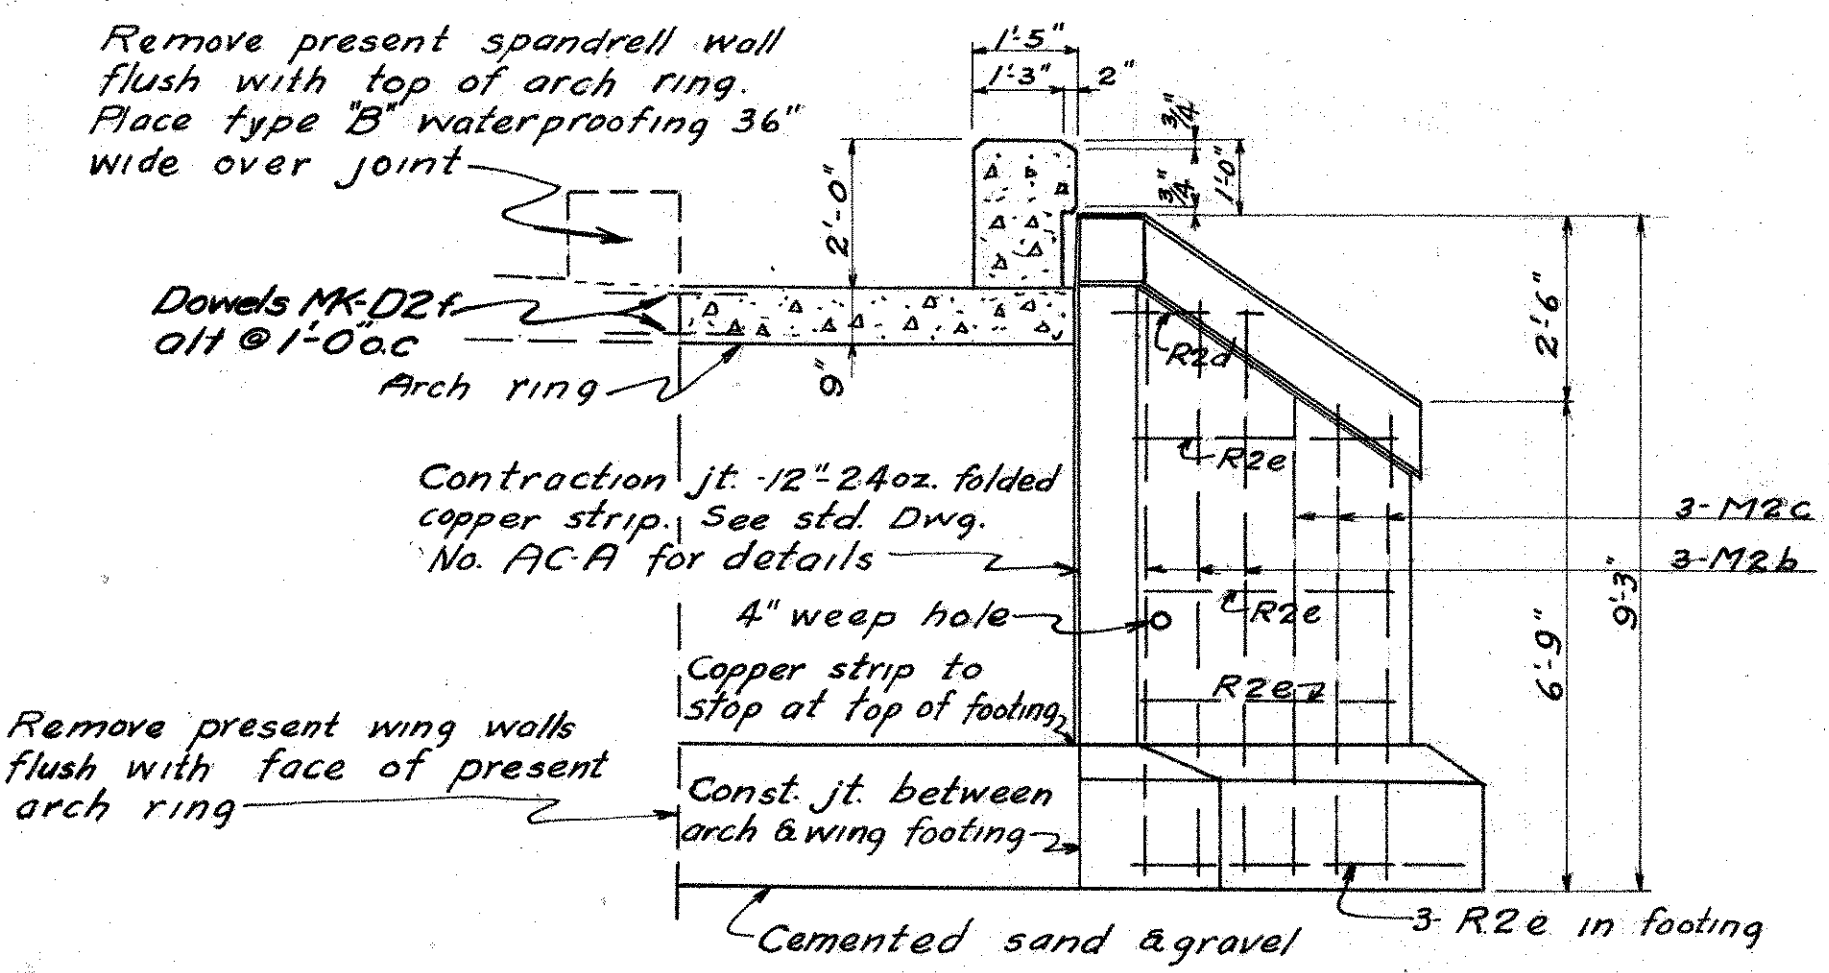 Remove present spandrell wall
flush with top of arch ring.
Place type "B" waterproofing 36"
wide over joint
1'-5"
1'-3"
2"
3/4"
3/4"
1'-0"
2'-0"
Dowels MK-D2f
alt @ 1'-0" o.c
9"
Arch ring
R2d
2'-6"
R2e
Contraction jt. -12"-24oz. folded
copper strip. See std. Dwg.
No. AC-A for details
3-M2c
3-M2b
9'-3"
4" weep hole
R2e
6'-9"
Copper strip to
stop at top of footing
R2e
Remove present wing walls
flush with face of present
arch ring
Const. jt. between
arch & wing footing
3-R2e in footing
Cemented sand & gravel